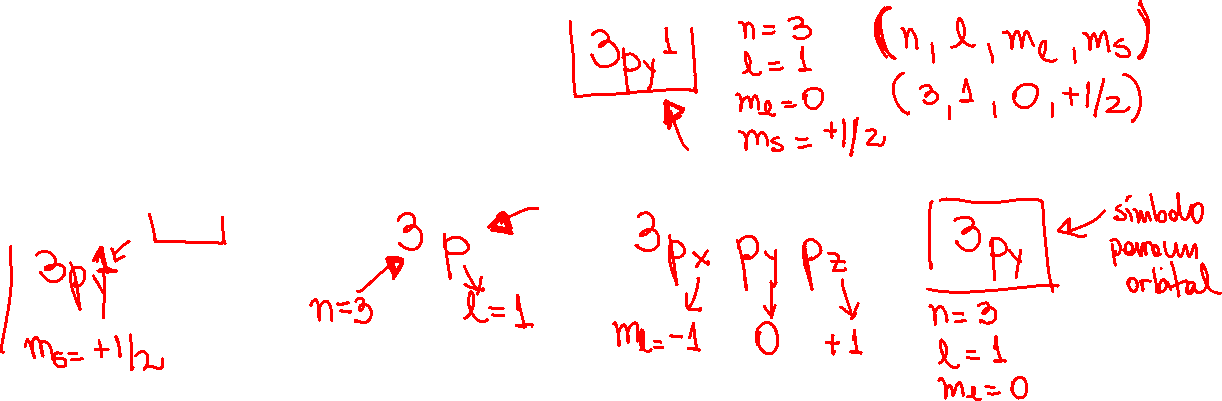 3py1
n=3
l=1
ml=0
ms=+1/2
(n, l, ml, ms)
(3, 1, 0, +1/2)
3py1
ms=+1/2
3p
n=3
l=1
3px py pz
ml=-1 0 +1
3py
n=3
l=1
ml=0
símbolo
para un
orbital